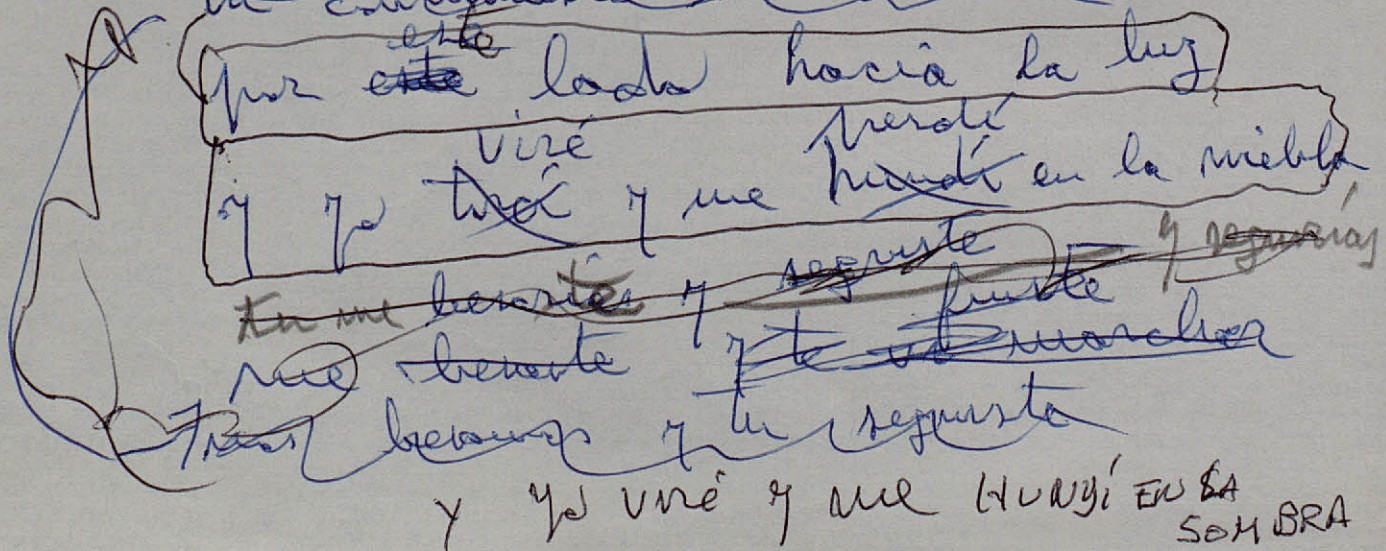 este
por este lado hacia la luz
viré perdí
y yo tiré y me hundí en la niebla
seguiste y seguirías
tu me besaste y fuiste
me besaste y te vi marchar
Tras besarnos y tu seguiste
y yo viré y me HUNDÍ EN LA
SOMBRA